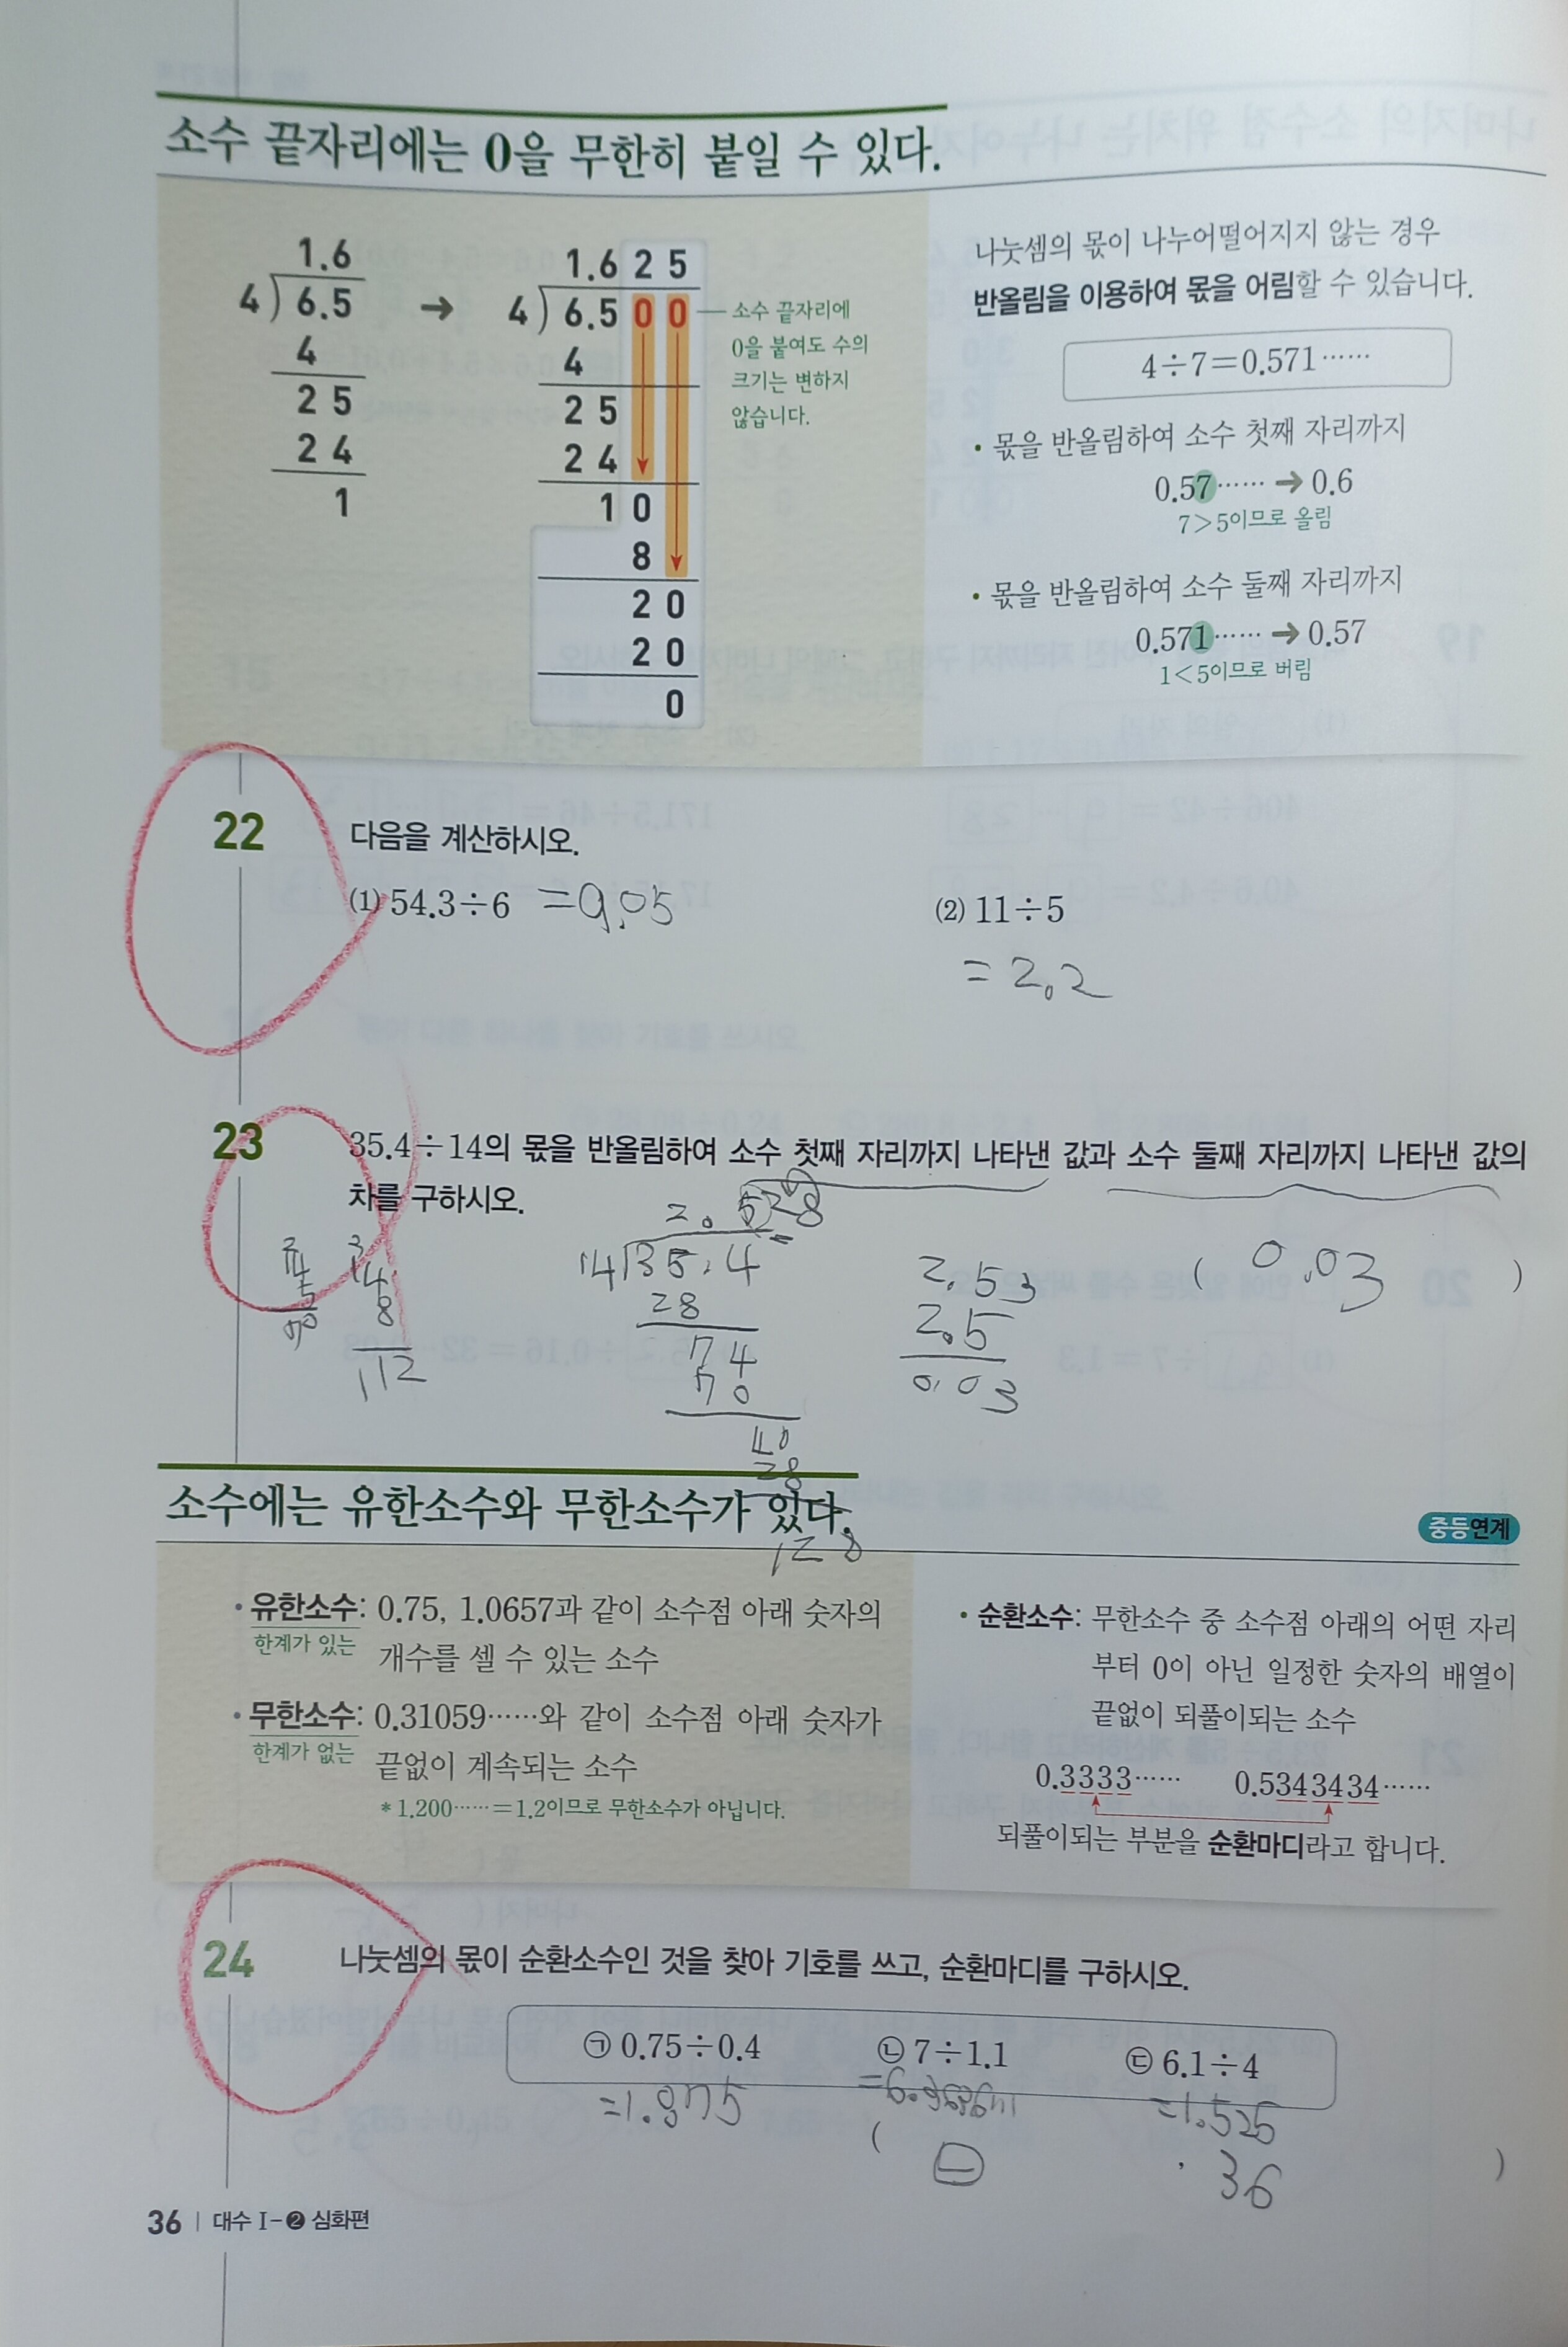 소수 끝자리에는 0을 무한히 붙일 수 있다.
1.6
4 ) 6.5
4
2 5
2 4
1
➔
1.6 2 5
4 ) 6.5 0 0
4
2 5
2 4
1 0
8
2 0
2 0
0
소수 끝자리에
0을 붙여도 수의
크기는 변하지
않습니다.
나눗셈의 몫이 나누어떨어지지 않는 경우
반올림을 이용하여 몫을 어림할 수 있습니다.
4÷7=0.571……
• 몫을 반올림하여 소수 첫째 자리까지
0.57…… ➔ 0.6
7>5이므로 올림
• 몫을 반올림하여 소수 둘째 자리까지
0.571…… ➔ 0.57
1<5이므로 버림
22 다음을 계산하시오.
(1) 54.3÷6 =9.05
(2) 11÷5
= 2.2
23 35.4÷14의 몫을 반올림하여 소수 첫째 자리까지 나타낸 값과 소수 둘째 자리까지 나타낸 값의
차를 구하시오.
14
5
70
3
14
8
112
2.528
14)35.4
28
74
70
40
28
128
2.53
2.5
0.03
( 0.03 )
소수에는 유한소수와 무한소수가 있다.
중등연계
• 유한소수: 0.75, 1.0657과 같이 소수점 아래 숫자의
한계가 있는
개수를 셀 수 있는 소수
• 무한소수: 0.31059……와 같이 소수점 아래 숫자가
한계가 없는
끝없이 계속되는 소수
* 1.200……=1.2이므로 무한소수가 아닙니다.
• 순환소수: 무한소수 중 소수점 아래의 어떤 자리
부터 0이 아닌 일정한 숫자의 배열이
끝없이 되풀이되는 소수
0.3333…… 0.5343434……
되풀이되는 부분을 순환마디라고 합니다.
24 나눗셈의 몫이 순환소수인 것을 찾아 기호를 쓰고, 순환마디를 구하시오.
㉠ 0.75÷0.4 ㉡ 7÷1.1 ㉢ 6.1÷4
=1.875
=1.525
( ㉡ , 36 )
36 | 대수 Ⅰ-❷ 심화편